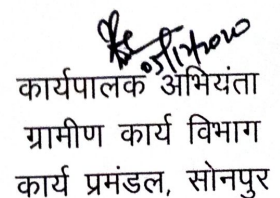 05/12/2020
कार्यपालक अभियंता
ग्रामीण कार्य विभाग
कार्य प्रमंडल, सोनपुर